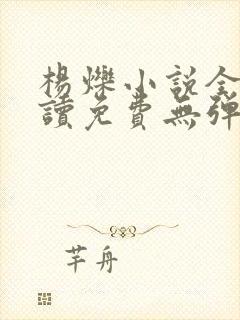 楊爍小說全
讀免費無彈
芊舟